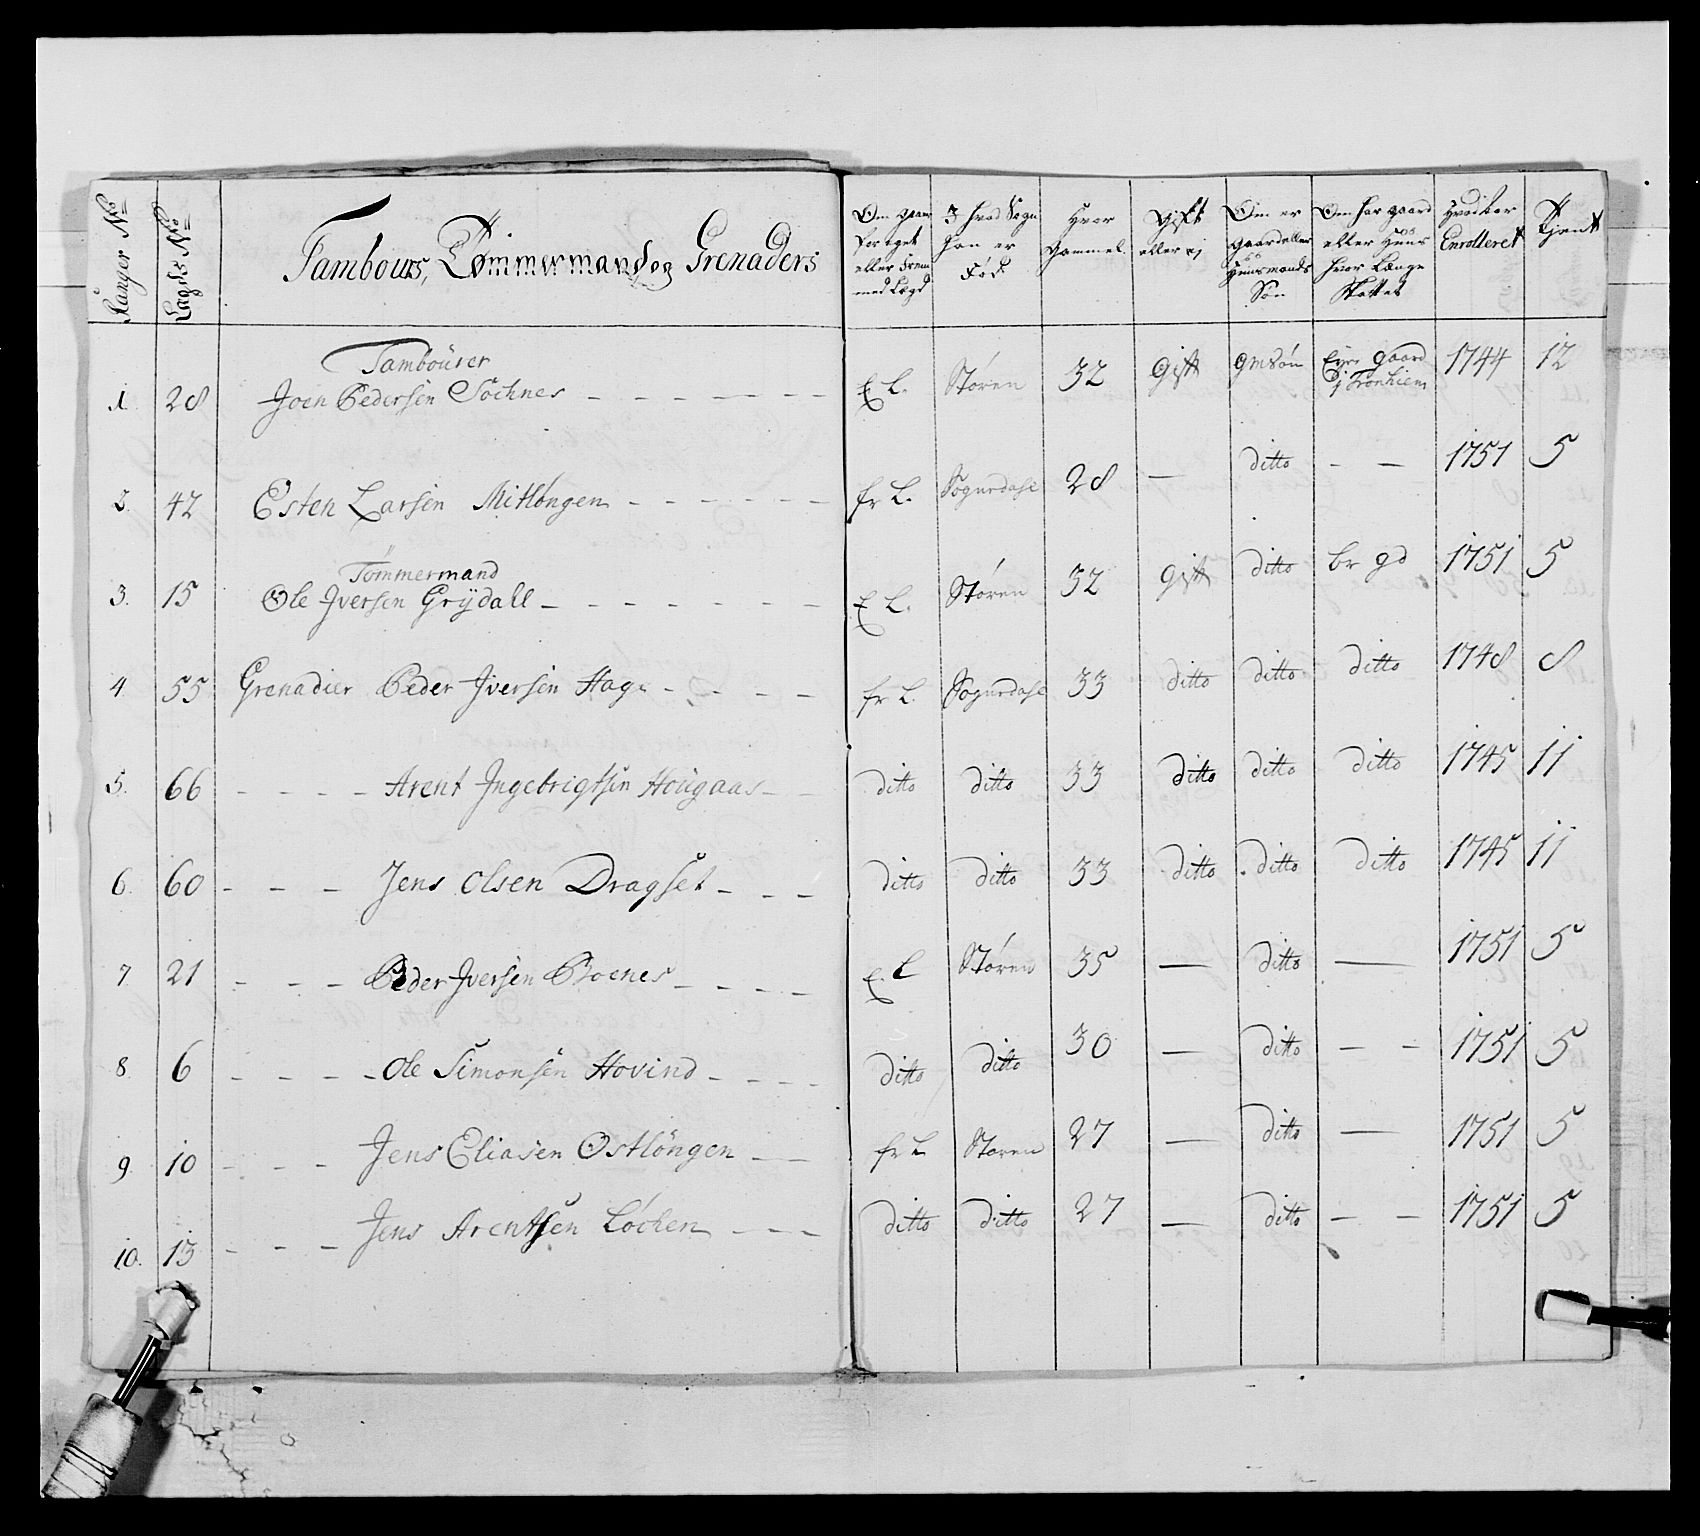 Ranger No
Lægds No
Tambours, Tømmermand og Grenaders
Om gaar for eget eller fremmed Lægd
I hvad Sogn han er Fød
Hvor Gammel
Gift eller ej
Om er gaard eller Huusmands Søn
Om har gaard eller Huus hvor Længe Skattet
Hvad Aar Enrolleret
Tjent
Tambouser
1 28 Joen Pedersen Sochnes E L. Støren 32 Gift gmsøn Eyer gaard j Tronhiem 1744 12
2. 42 Esten Larsen Mitlöngen fr L. Sognedahl 28 — ditto — — 1751 5
Tömmermand
3. 15 Ole Jversen Grÿdall E L. Støren 32 Gift ditto br gd 1751 5
4 55 Grenadier Peder Jversen Hage fr L. Sognedahl 33 ditto ditto ditto 1748 8
5. 66 Arent Jngebrigtsen Hougaas ditto ditto 33 ditto ditto ditto 1745 11
6. 60 Jens Olsen Dragset ditto ditto 33 ditto ditto ditto 1745 11
7. 21 Peder Jversen Boenes E L Støren 35 — ditto — 1751 5
8. 6 Ole Simonsen Hovind ditto ditto 30 — ditto — — 1751 5
9. 10 Jens Eliasen Ostlöngen fr L Støren 27 — ditto — 1751 5
10. 13 Jens Arentsen Löchen ditto ditto 27 — ditto — — 1751 5